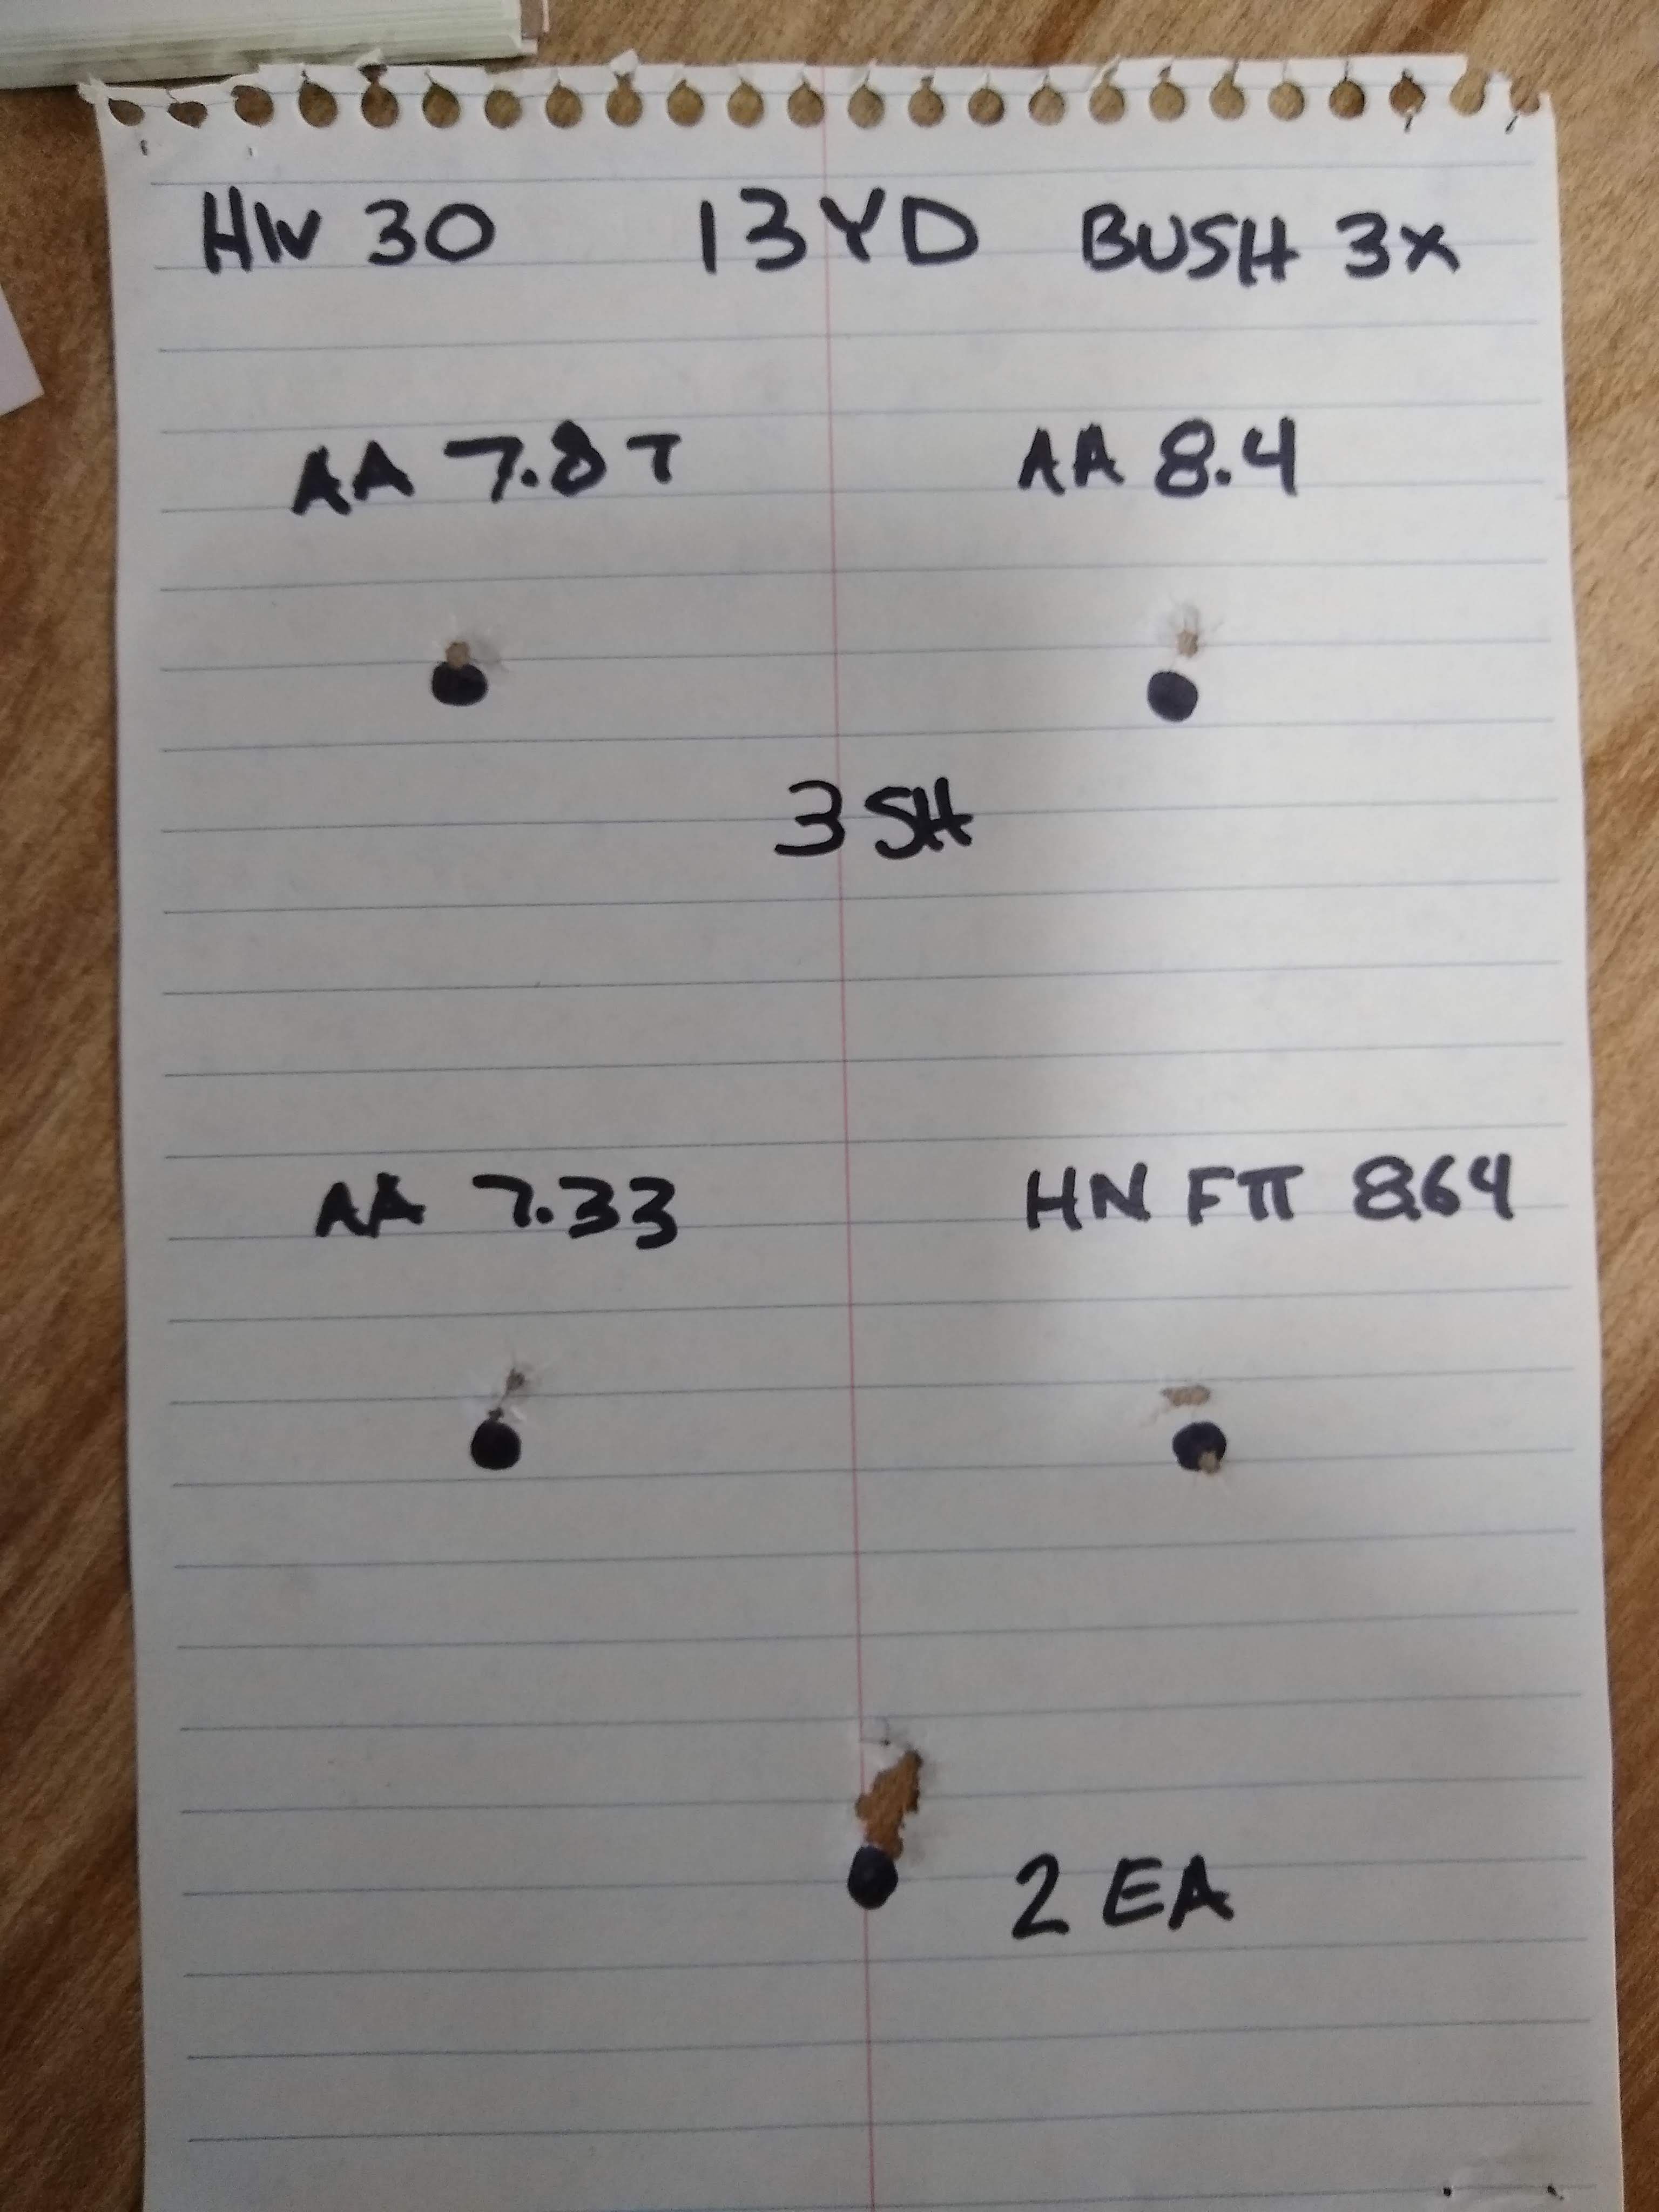 HW 30 13YD BUSH 3X
AA 7.8 T AA 8.4
3 SH
AA 7.33 HN FTT 8.64
2 EA